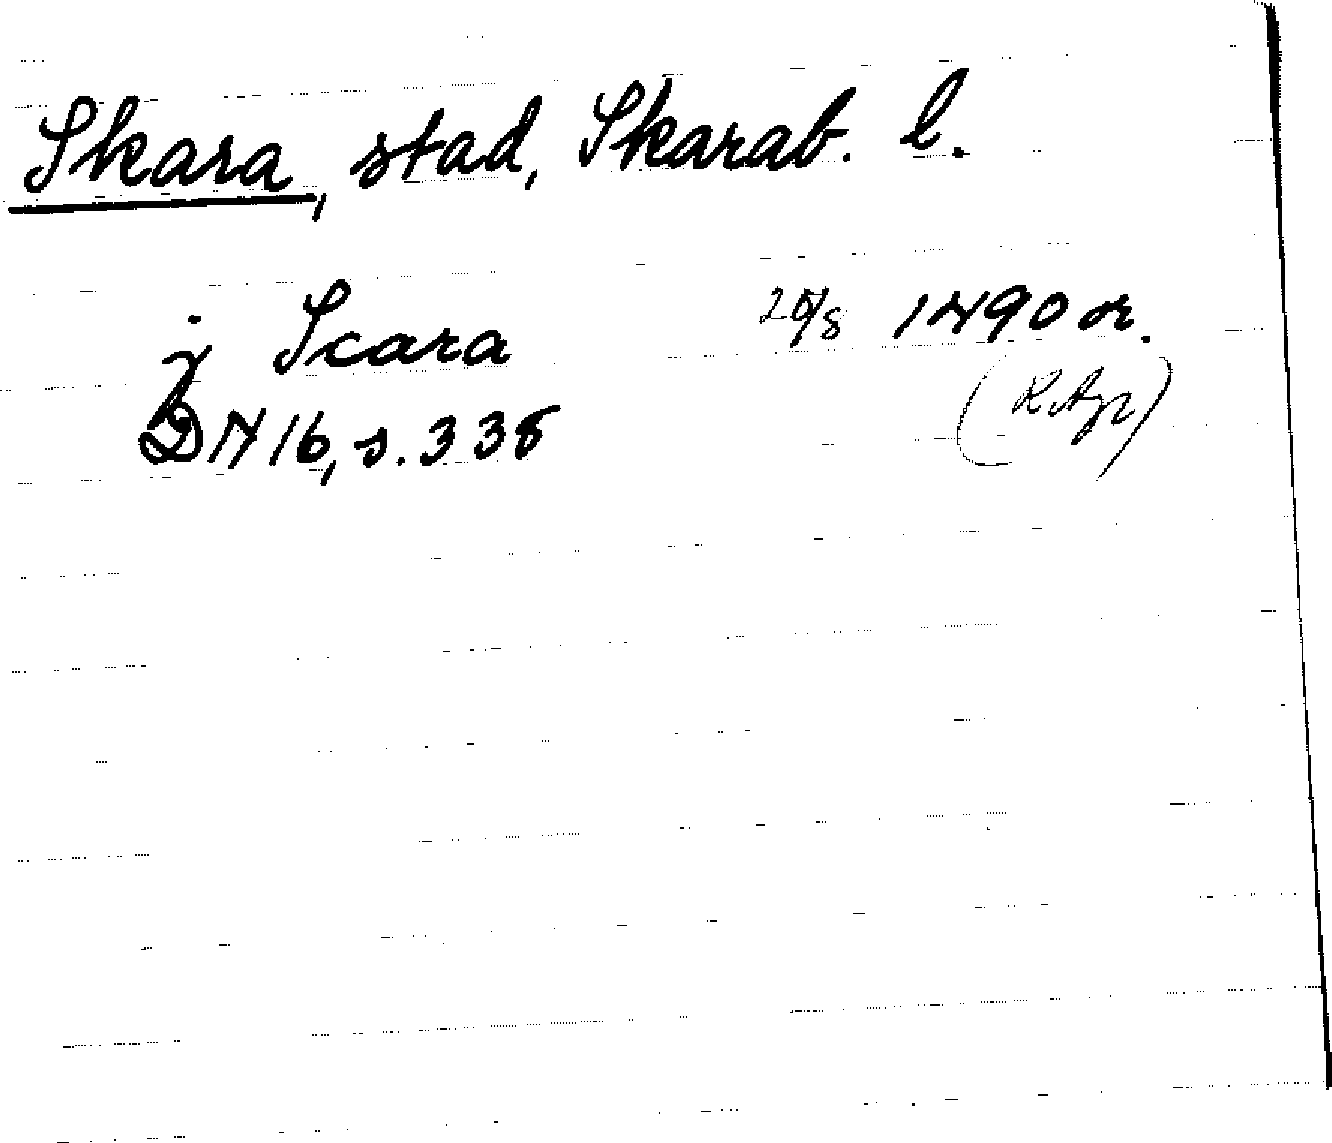 Skara, stad, Skarab. l.
j Scara 20/8 1490 or.
(RAp)
DN 16, s. 338